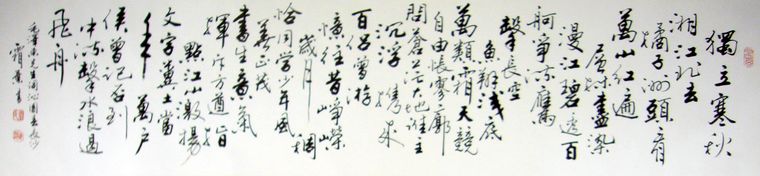 獨立寒秋
湘江北去
橘子洲頭看
萬山紅遍
層林盡染
漫江碧透百
舸爭流鷹
擊長空
魚翔淺底
萬類霜天競
自由悵寥廓
問蒼茫大地誰主
沉浮携來
百侶曾游
憶往昔崢嶸
歲月稠
恰同學少年風
華正茂
書生意氣
揮斥方遒指
點江山激揚
文字糞土當
年萬户
侯曾記否到
中流擊水浪遏
飛舟
毛澤東先生詞沁園春長沙